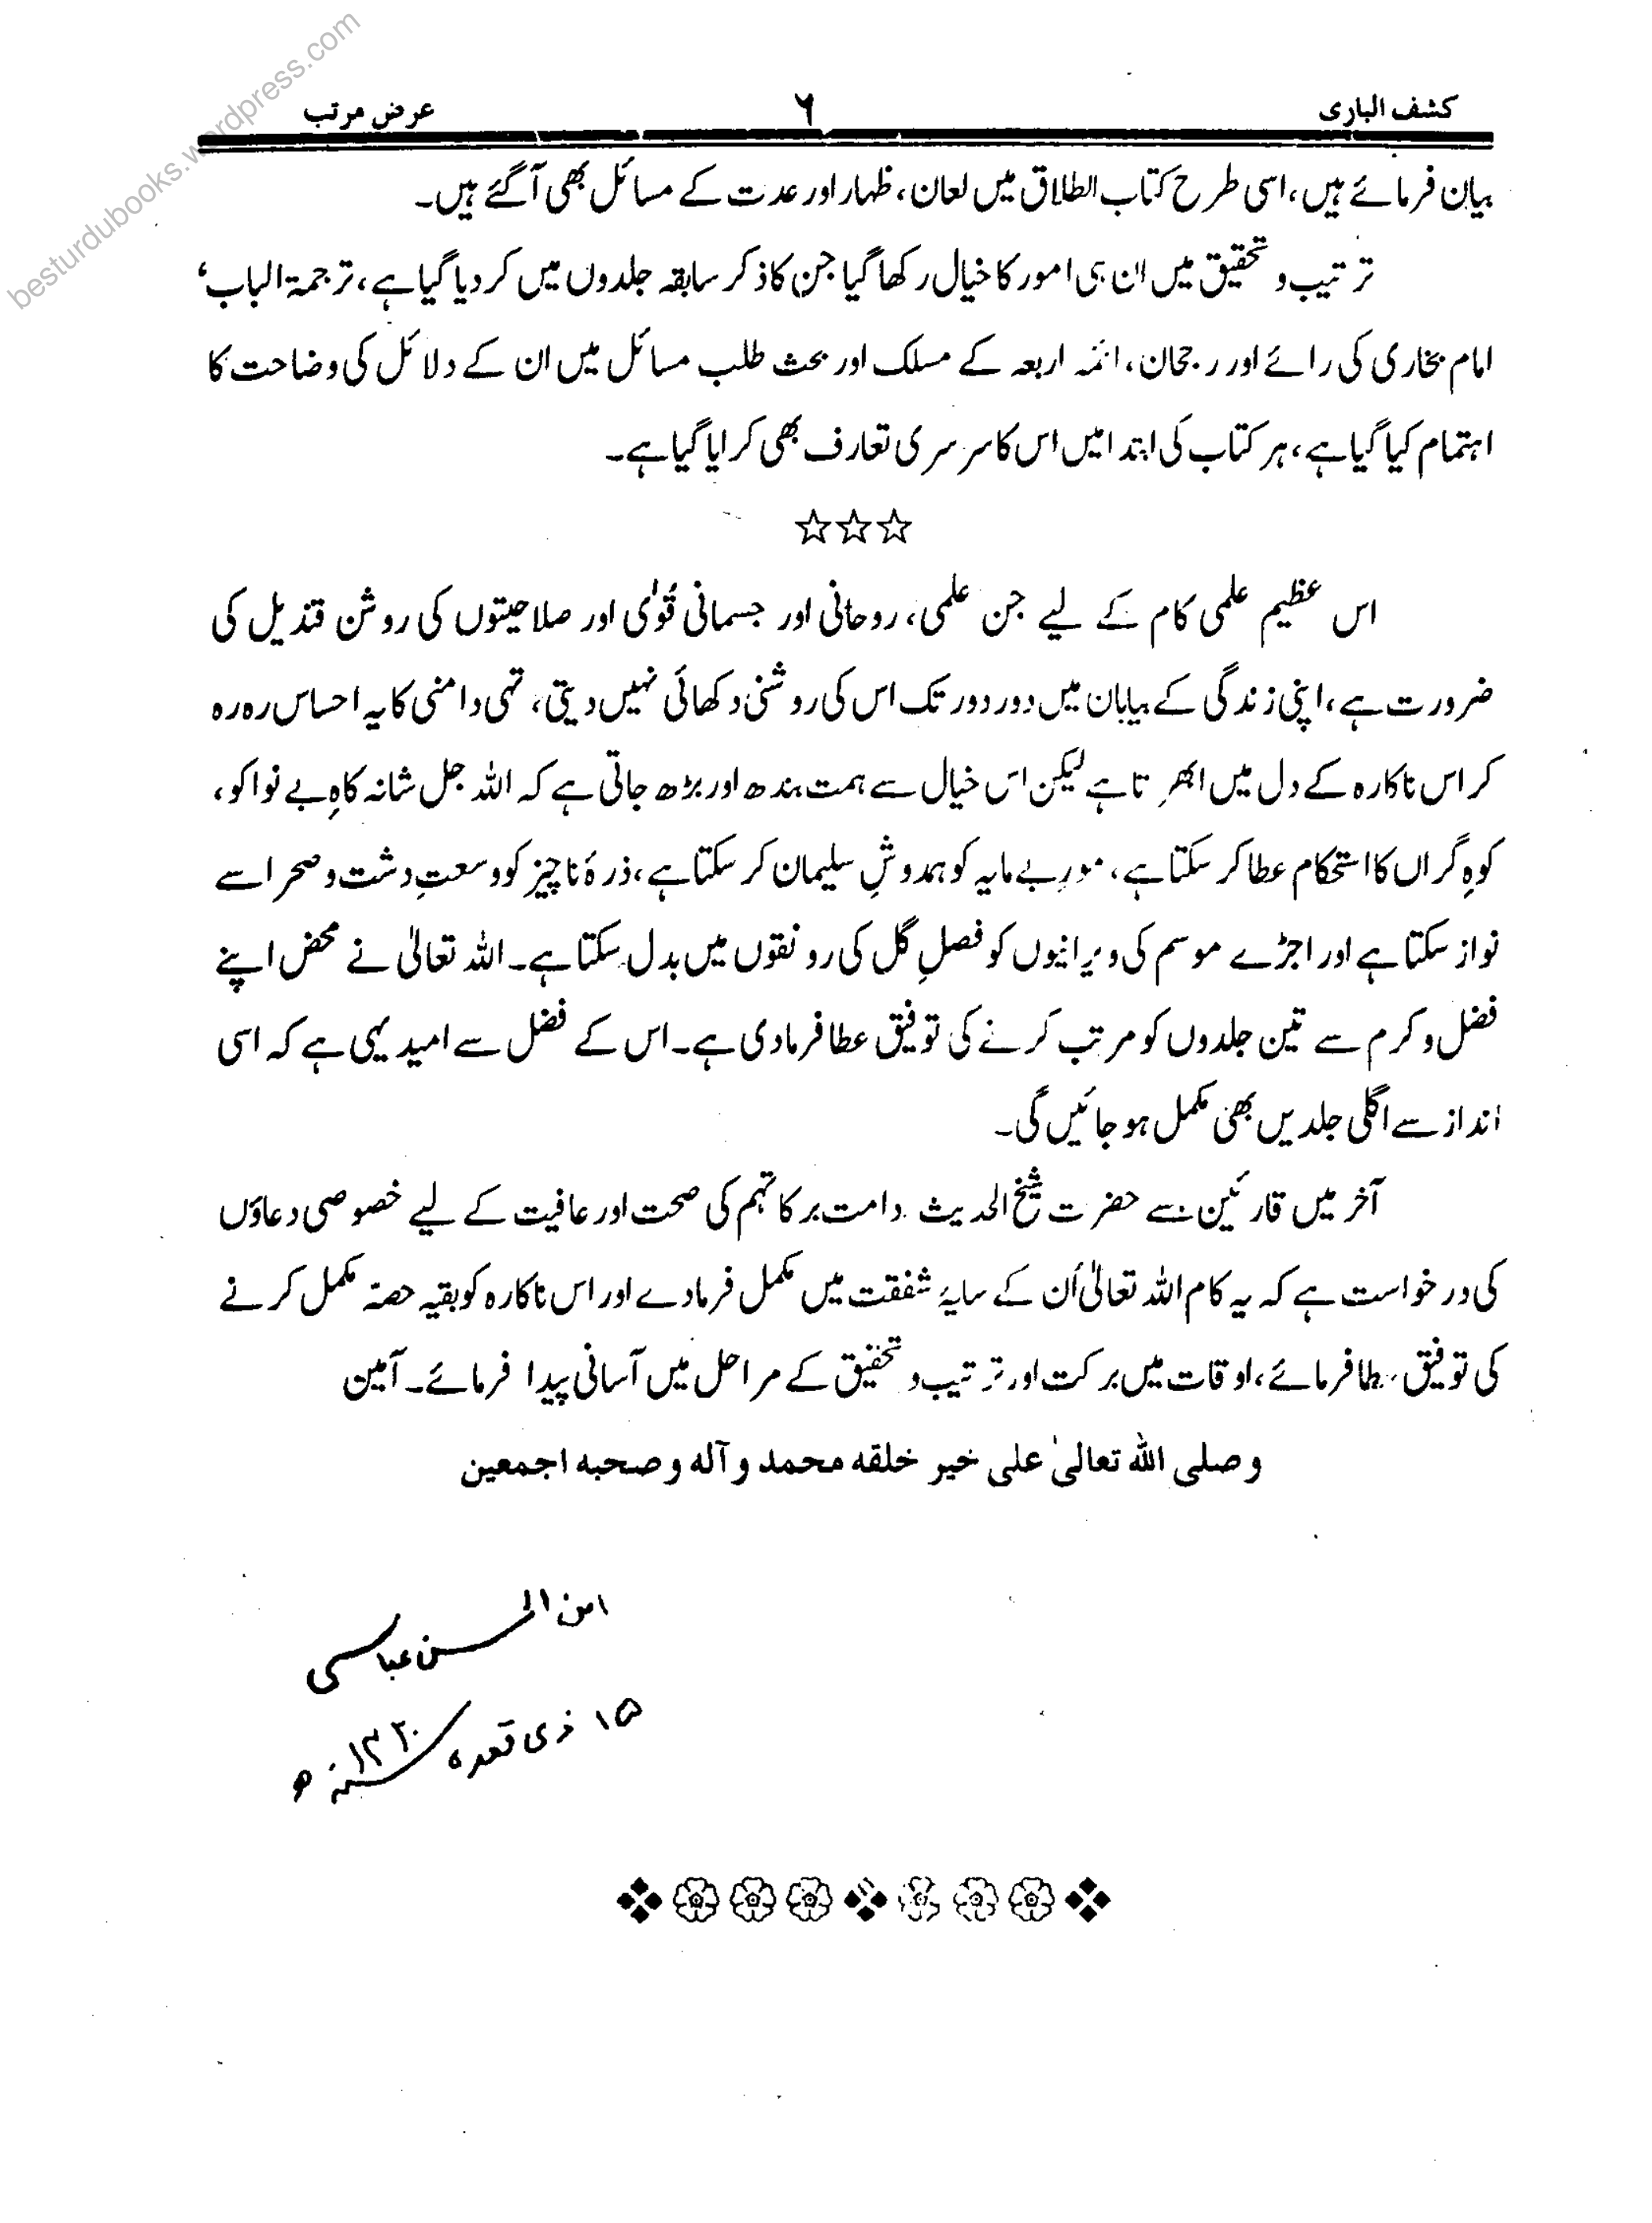 کشف الباری ۶ عرض مرتب
besturdubooks.wordpress.com
بیان فرمائے ہیں، اسی طرح کتاب الطلاق میں لعان، ظہار اور عدت کے مسائل بھی آگئے ہیں۔
ترتیب و تحقیق میں ان ہی امور کا خیال رکھا گیا جن کا ذکر سابقہ جلدوں میں کردیا گیا ہے، ترجمۃ الباب،
امام بخاری کی رائے اور رجحان، ائمہ اربعہ کے مسلک اور بحث طلب مسائل میں ان کے دلائل کی وضاحت کا
اہتمام کیا گیا ہے، ہر کتاب کی ابتدا میں اس کا سرسری تعارف بھی کرایا گیا ہے۔
☆☆☆
اس عظیم علمی کام کے لیے جن علمی، روحانی اور جسمانی قُوٰی اور صلاحیتوں کی روشن قندیل کی
ضرورت ہے، اپنی زندگی کے بیابان میں دور دور تک اس کی روشنی دکھائی نہیں دیتی، تہی دامنی کا یہ احساس رہ رہ
کر اس ناکارہ کے دل میں ابھرتا ہے لیکن اس خیال سے ہمت بندھ اور بڑھ جاتی ہے کہ اللہ جل شانہ کاہِ بے نوا کو،
کوہِ گراں کا استحکام عطا کر سکتا ہے، مورِ بے مایہ کو ہمدوشِ سلیمان کر سکتا ہے، ذرۂ ناچیز کو وسعتِ دشت و صحرا سے
نواز سکتا ہے اور اجڑے موسم کی ویرانیوں کو فصلِ گل کی رونقوں میں بدل سکتا ہے۔ اللہ تعالیٰ نے محض اپنے
فضل و کرم سے تین جلدوں کو مرتب کرنے کی توفیق عطا فرمادی ہے۔ اس کے فضل سے امید یہی ہے کہ اسی
انداز سے اگلی جلدیں بھی مکمل ہو جائیں گی۔
آخر میں قارئین سے حضرت شیخ الحدیث دامت برکاتہم کی صحت اور عافیت کے لیے خصوصی دعاؤں
کی درخواست ہے کہ یہ کام اللہ تعالیٰ اُن کے سایۂ شفقت میں مکمل فرمادے اور اس ناکارہ کو بقیہ حصہ مکمل کرنے
کی توفیق عطا فرمائے، اوقات میں برکت اور ترتیب و تحقیق کے مراحل میں آسانی پیدا فرمائے۔ آمین
وصلی اللہ تعالیٰ علی خیر خلقه محمد و آله وصحبه اجمعین
ابن الحسن عباسی
۱۵ ذی قعدہ ۱۴۲۰ھ